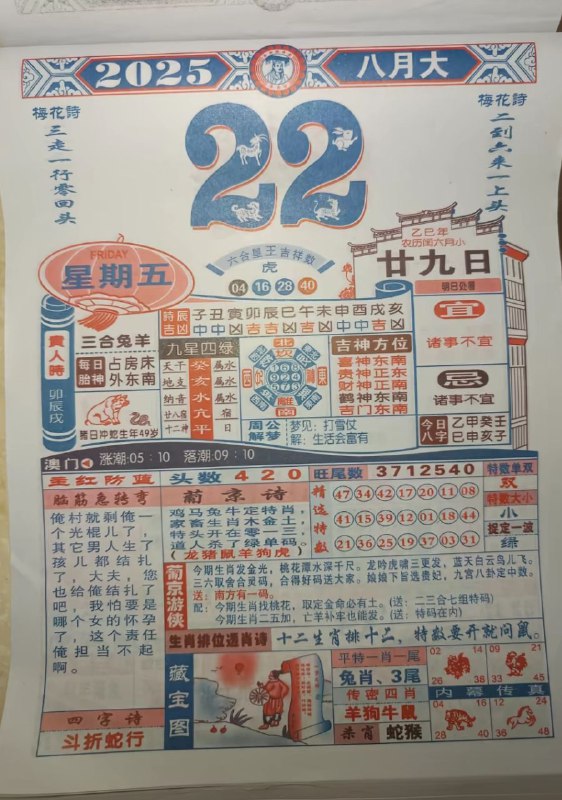 2025
八月大
梅花詩
三走一行零回头
22
梅花詩
二到六来一上头
FRIDAY
星期五
六合星王吉祥数
虎
04 16 28 40
乙巳年
农历闰六月小
廿九日
明日处暑
宜
诸事不宜
忌
诸事不宜
今日八字
乙甲癸壬
巳申亥子
貴人時
卯辰戌
三合兔羊
每日胎神
占房床
外东南
猪日冲蛇生年49岁
時辰 子丑寅卯辰巳午未申酉戌亥
吉凶
九星四绿
天干 癸 属水
地支 亥 属水
纳音 水 属水
廿八宿 亢 宿
十二神 平 日
吉神方位
喜神东南
贵神正东
财神正南
鹤神东南
吉门东南
周公解梦
梦见:打雪仗
解:生活会富有
澳门
涨潮:05:10 落潮:09:10
主红防蓝
头数 420
旺尾数 3712540
特数单双
双
特数大小
小
捉定一波
绿
脑筋急转弯
俺村就剩俺一
个光棍儿了,
其它男人生了
孩儿都结扎
了,大夫,您
也给俺结扎了
吧,我怕要是
哪个女的怀孕
了,这个责任
俺担当不起
啊。
葡京诗
鸡马兔牛定特肖,
家畜生肖木金土,
特头开在零一三,
道人杀了绿单码。
(龙猪鼠羊狗虎)
精选特数
47 34 42 17 20 11 08
41 15 39 12 01 18 44
21 36 25 19 37 03 31
葡京游侠
今期生肖发金光,桃花潭水深千尺。龙吟虎啸三更发,蓝天白云鸟儿飞。
三六取舍合灵码,合得好码送大家。娘娘下旨选贵妃,九宫八卦定中数。
送:南方有一码。
配:今期生肖找桃花,取定金命必有土。(送:二三合七组特码)
今期生肖二五加,亡羊补牢也能发。(送:特码在内)
生肖排位遇肖诗
十二生肖排十二,特数要开就问鼠。
四字诗
斗折蛇行
藏宝图
平特一肖一尾
兔肖、3尾
传密四肖
羊狗牛鼠
杀肖
蛇猴
02 14
26 38
09 21
33 45
内幕传真
04 16
28 40
12 24
36 48